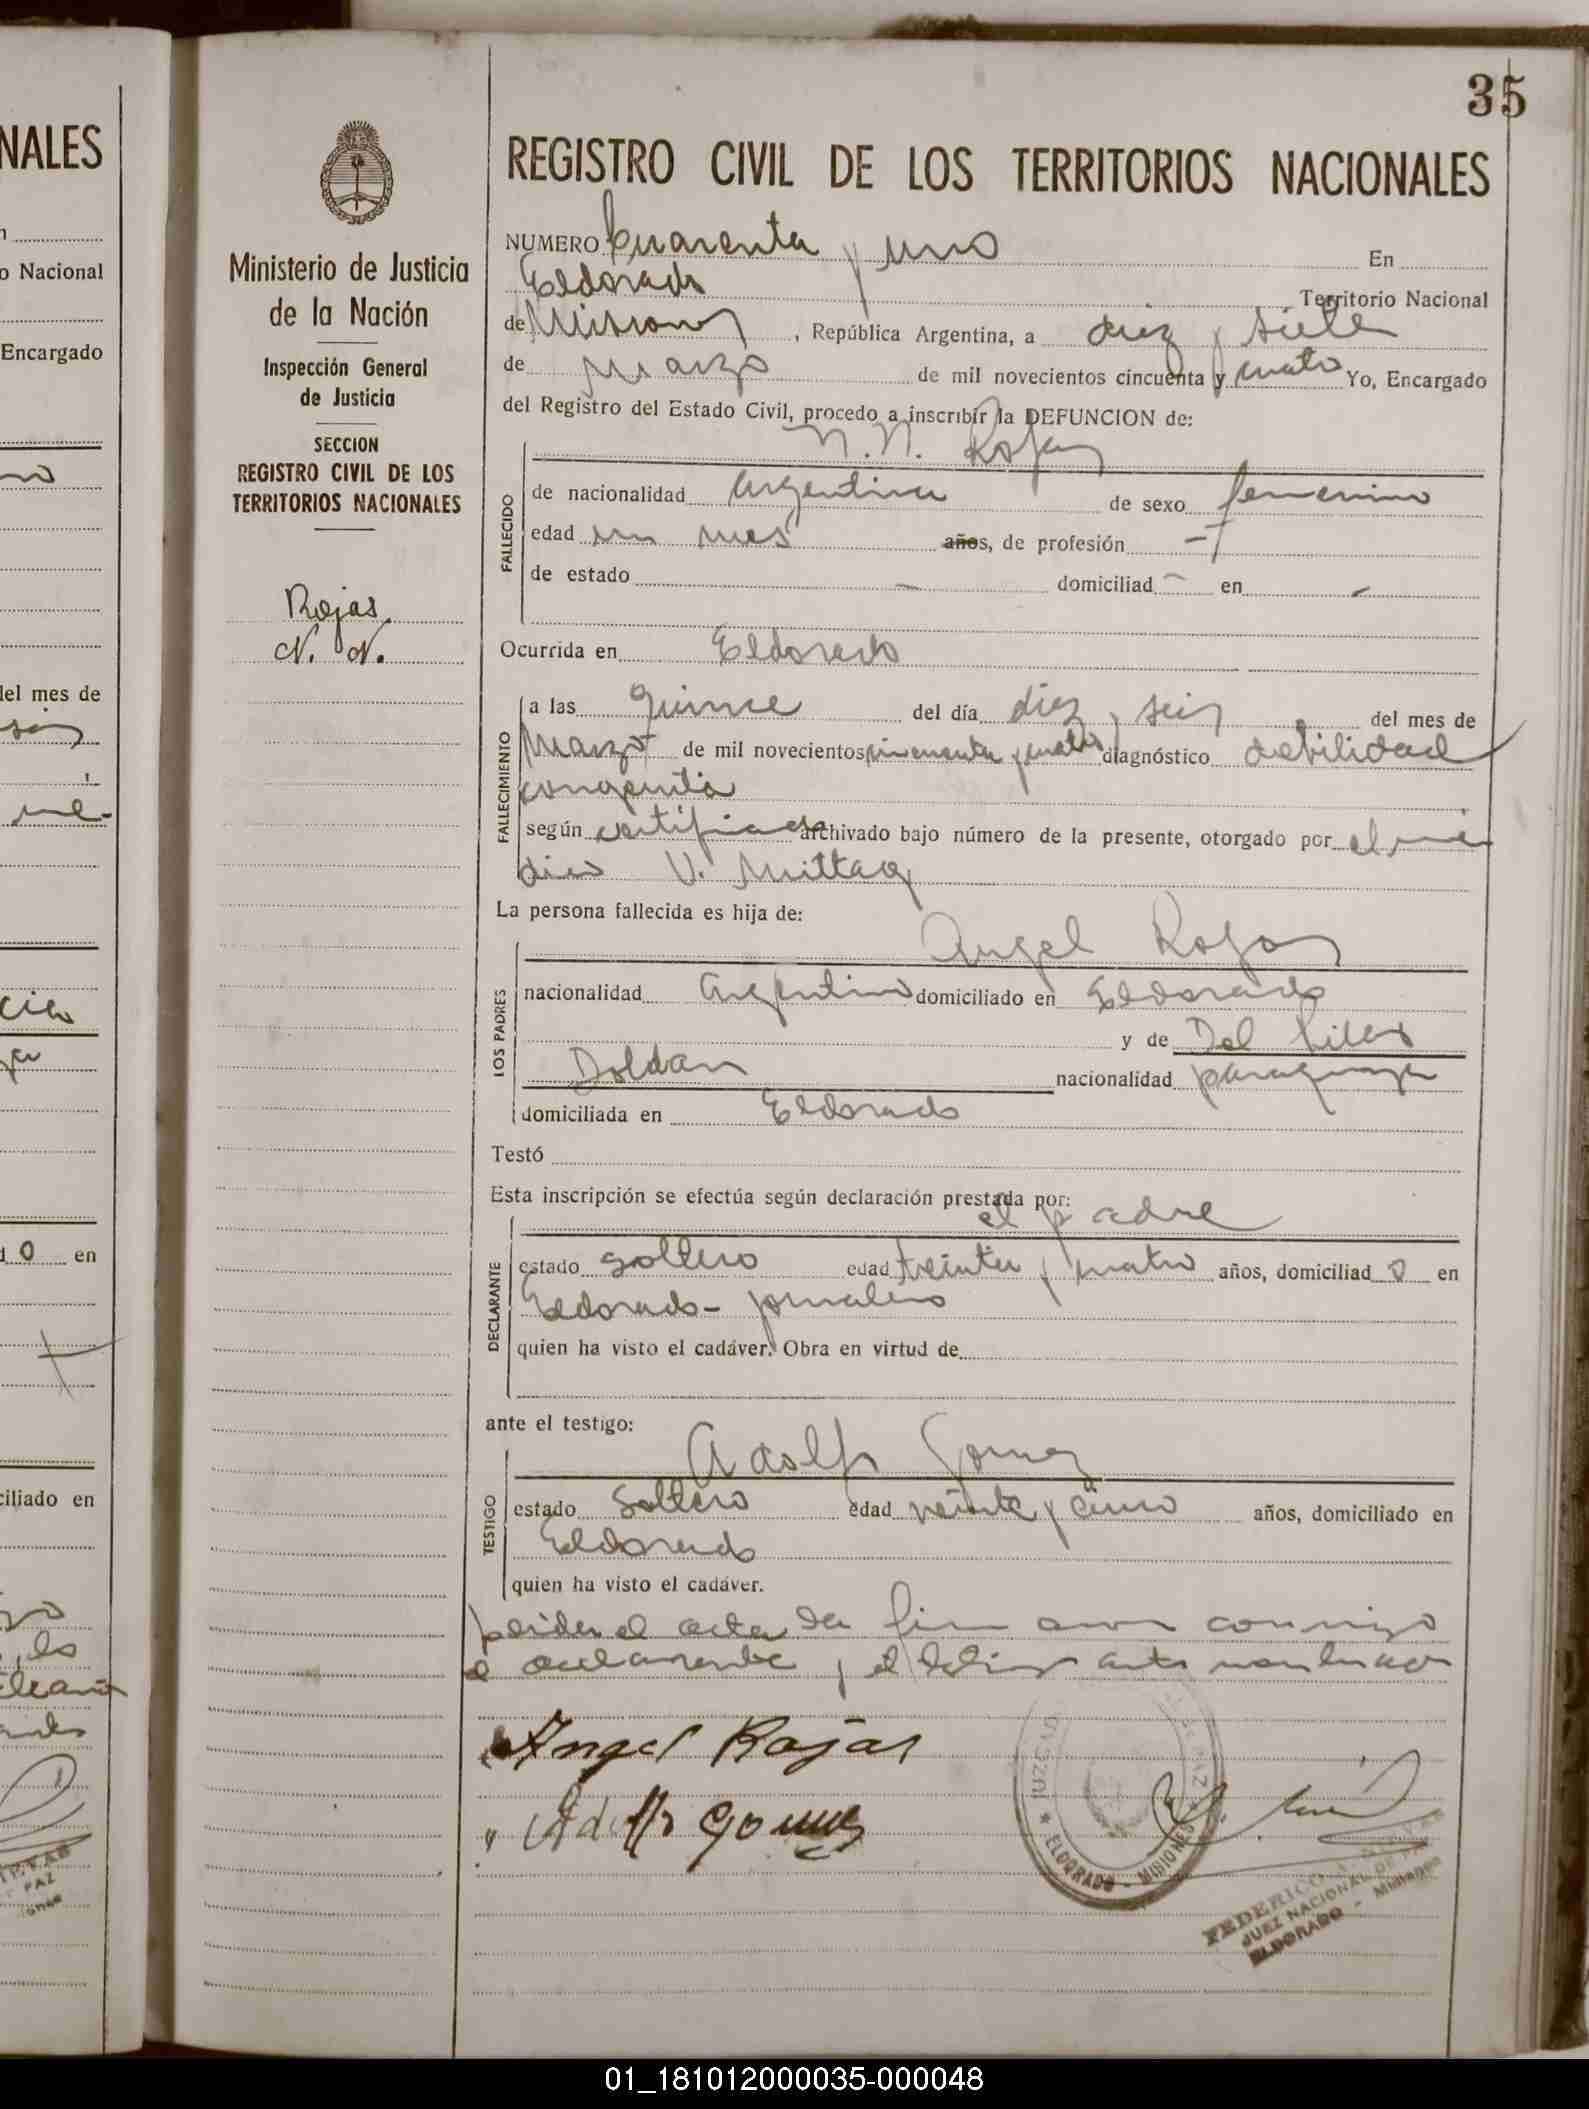 35
NALES
REGISTRO CIVIL DE LOS TERRITORIOS NACIONALES
Ministerio de Justicia
de la Nación
Inspección General
de Justicia
SECCION
REGISTRO CIVIL DE LOS
TERRITORIOS NACIONALES
Rojas
N. N.
o Nacional
Encargado
del mes de
en
ciliado en
NUMERO Cuarenta y uno En
Eldorado Territorio Nacional
de Misiones, República Argentina, a diez y siete
de Marzo de mil novecientos cincuenta y cuatro Yo, Encargado
del Registro del Estado Civil, procedo a inscribir la DEFUNCION de:
N. N. Rojas
FALLECIDO
de nacionalidad Argentina de sexo femenino
edad un mes años, de profesión -
de estado - domiciliad - en -
Ocurrida en Eldorado
FALLECIMIENTO
a las quince del día diez y seis del mes de
Marzo de mil novecientos cincuenta y cuatro diagnóstico debilidad
congenita
según certificado archivado bajo número de la presente, otorgado por el mé
dico V. Mittag
La persona fallecida es hija de:
LOS PADRES
Angel Rojas
nacionalidad Argentino domiciliado en Eldorado
y de Del Pilar
Doldan nacionalidad paraguaya
domiciliada en Eldorado
Testó
Esta inscripción se efectúa según declaración prestada por:
el padre
DECLARANTE
estado soltero edad treinta y cuatro años, domiciliad o en
Eldorado - jornalero
quien ha visto el cadáver. Obra en virtud de
ante el testigo:
Adolfo Gomez
TESTIGO
estado Soltero edad veinte y cinco años, domiciliado en
Eldorado
quien ha visto el cadáver.
el acta la firman conmigo
el declarante y el testigo antes nombrado
Angel Rojas
Adolfo Gomez
JUZGADO DE PAZ
ELDORADO - MISIONES
FEDERICO
JUEZ NACIONAL DE PAZ
ELDORADO - Misiones
01_181012000035-000048